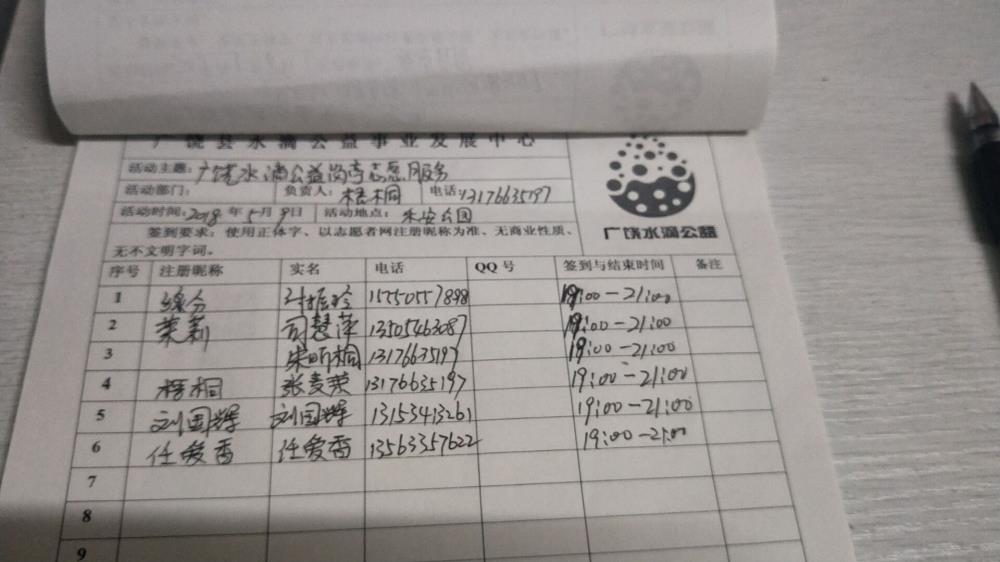 广饶县水滴公益事业发展中心
活动主题: 广饶水滴公益岗亭志愿服务
活动部门: 负责人: 梧桐 电话: 13176635197
活动时间: 2018 年 5 月 9 日 活动地点: 乐安公园
签到要求: 使用正体字、以志愿者网注册昵称为准、无商业性质、
无不文明字词。
广饶水滴公益
序号 注册昵称 实名 电话 QQ 号 签到与结束时间 备注
1 缘分 15750557898 19:00-21:00
2 茉莉 司慧萍 13505463087 19:00-21:00
3 宋昕桐 13176635197 19:00-21:00
4 梧桐 张麦荣 13176635197 19:00-21:00
5 刘国辉 刘国辉 13153413261 19:00-21:00
6 任爱香 任爱香 13563357622 19:00-21:00
7
8
9